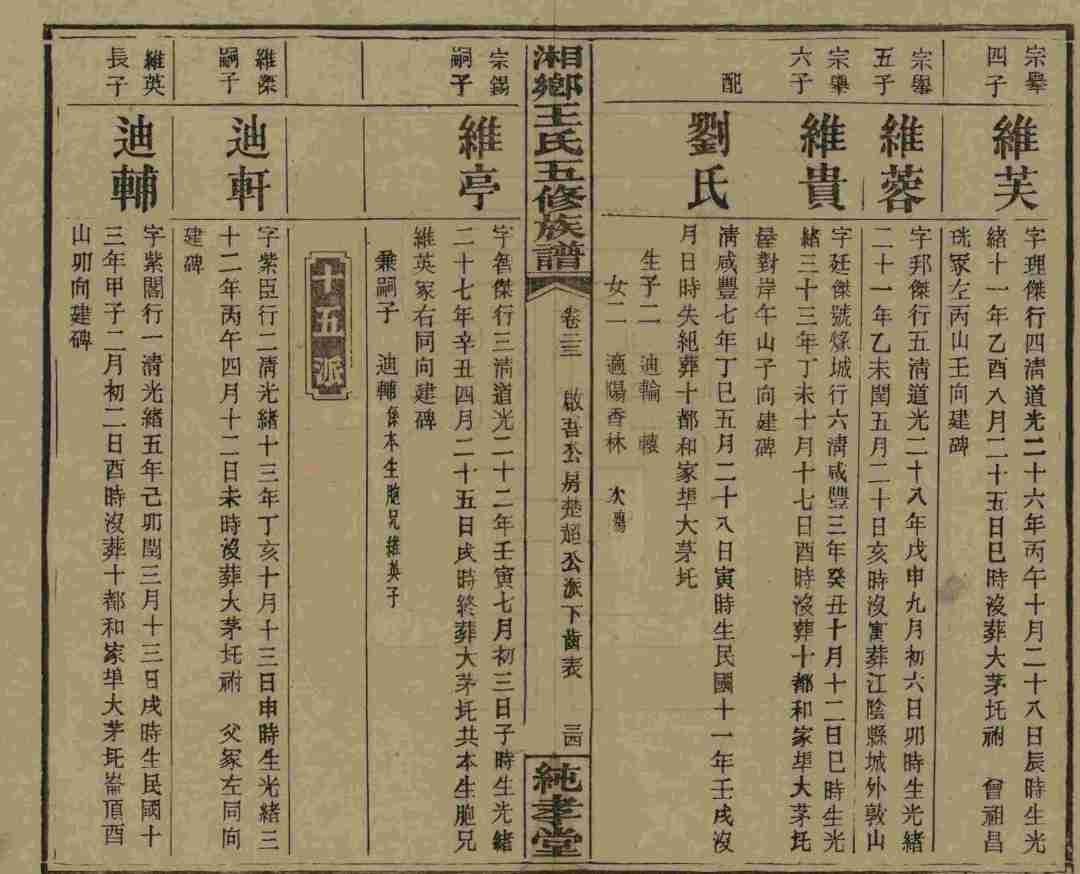 宗舉
四子
維芙
字理傑行四淸道光二十六年丙午十月二十八日辰時生光
緒十一年乙酉八月二十五日巳時沒葬大茅坵祔　曾祖昌
珖冢左丙山壬向建碑
宗舉
五子
維蓉
字邦傑行五淸道光二十八年戊申九月初六日卯時生光緒
二十一年乙未閏五月二十日亥時沒寓葬江陰縣城外敦山
宗舉
六子
維貴
字廷傑號烽城行六淸咸豐三年癸丑十月十二日巳時生光
緒三十三年丁未十月十七日酉時沒葬十都和家埠大茅坵
屋對岸午山子向建碑
配
劉氏
淸咸豐七年丁巳五月二十八日寅時生民國十一年壬戌沒
月日時失紀葬十都和家埠大茅坵
生子二　迪輪　轅
女二　適陽香林　次殤
湘鄉王氏五修族譜
卷三三　啟吾公房楚超公派下齒表　三四
純孝堂
宗錫
嗣子
維亭
字智傑行三淸道光二十二年壬寅七月初三日子時生光緒
二十七年辛丑四月二十五日戌時終葬大茅坵共本生胞兄
維英冢右同向建碑
兼嗣子　迪輔係本生胞兄維英子
十五派
維傑
嗣子
迪軒
字紫臣行二淸光緒十三年丁亥十月十三日申時生光緒三
十二年丙午四月十二日未時沒葬大茅坵祔　父冢左同向
建碑
維英
長子
迪輔
字紫閣行一淸光緒五年己卯閏三月十三日戌時生民國十
三年甲子二月初二日酉時沒葬十都和家埠大茅坵崙頂酉
山卯向建碑